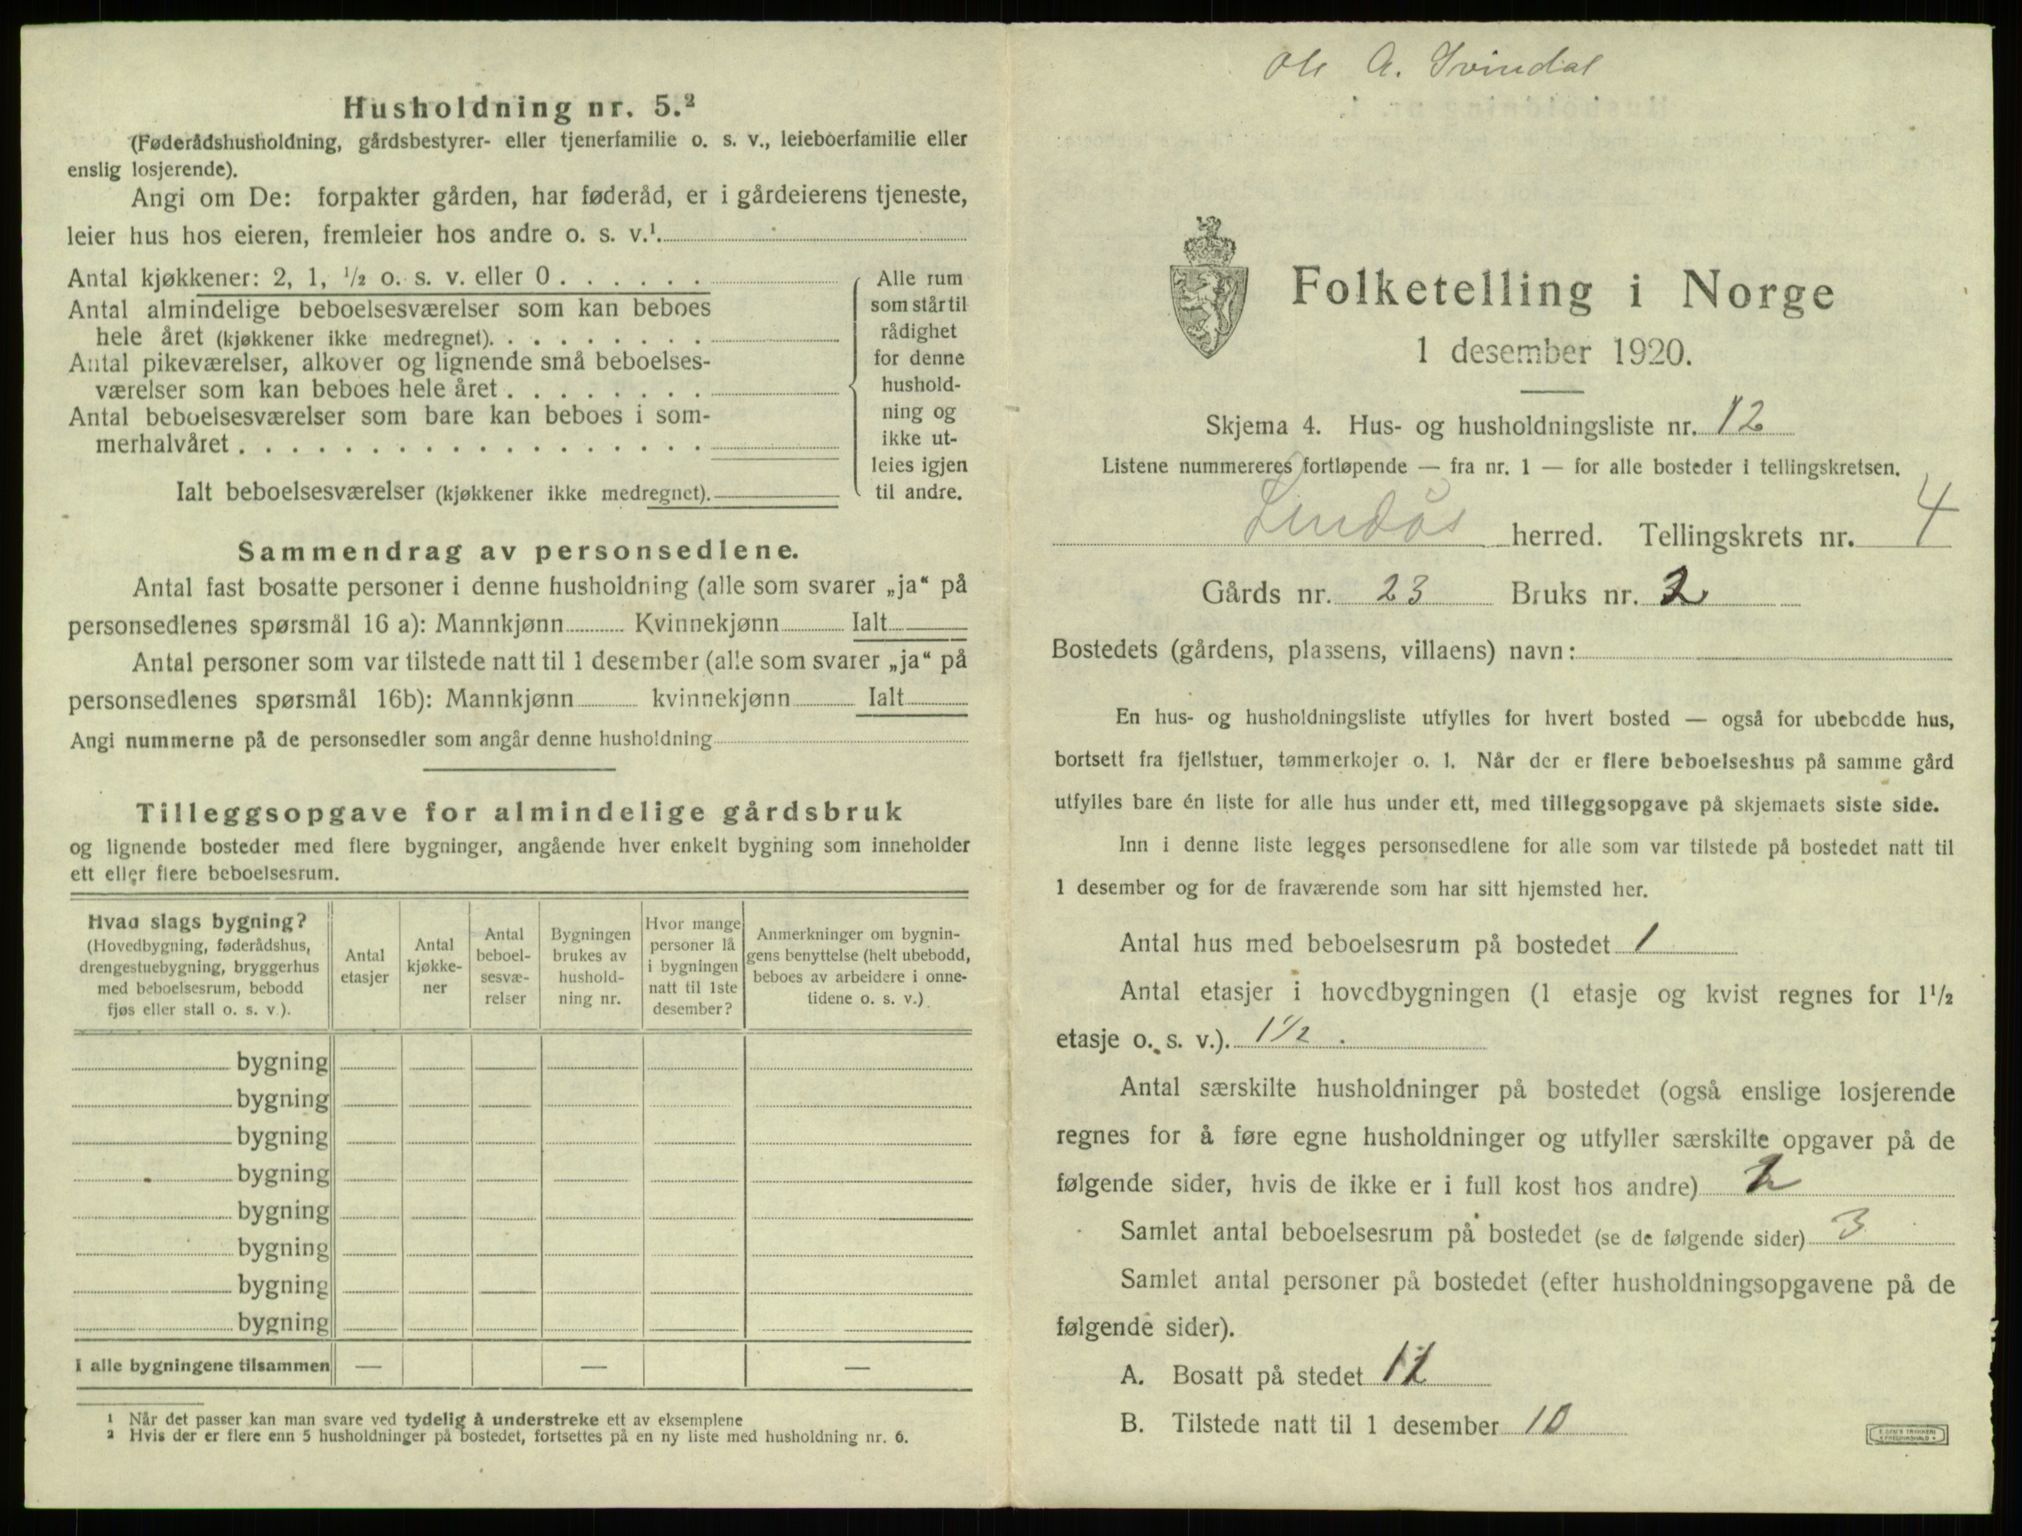 Husholdning nr. 5.²
(Føderådshusholdning, gårdsbestyrer- eller tjenerfamilie o. s. v., leieboerfamilie eller
enslig losjerende).
Angi om De: forpakter gården, har føderåd, er i gårdeierens tjeneste,
leier hus hos eieren, fremleier hos andre o. s. v.¹
Antal kjøkkener: 2, 1, ½ o. s. v. eller 0 . . . . . .
Antal almindelige beboelsesværelser som kan beboes
hele året (kjøkkener ikke medregnet). . . . . . . . .
Antal pikeværelser, alkover og lignende små beboelses-
værelser som kan beboes hele året . . . . . . . .
Antal beboelsesværelser som bare kan beboes i som-
merhalvåret . . . . . . . . . . . . . . . . . .
Ialt beboelsesværelser (kjøkkener ikke medregnet).
Alle rum
som står til
rådighet
for denne
hushold-
ning og
ikke ut-
leies igjen
til andre.
Sammendrag av personsedlene.
Antal fast bosatte personer i denne husholdning (alle som svarer „ja“ på
personsedlenes spørsmål 16 a): Mannkjønn Kvinnekjønn Ialt
Antal personer som var tilstede natt til 1 desember (alle som svarer „ja“ på
personsedlenes spørsmål 16b): Mannkjønn kvinnekjønn Ialt
Angi nummerne på de personsedler som angår denne husholdning
Tilleggsopgave for almindelige gårdsbruk
og lignende bosteder med flere bygninger, angående hver enkelt bygning som inneholder
ett eller flere beboelsesrum.
Hvad slags bygning?
(Hovedbygning, føderådshus,
drengestuebygning, bryggerhus
med beboelsesrum, bebodd
fjøs eller stall o. s. v.).
Antal
etasjer
Antal
kjøkke-
ner
Antal
beboel-
sesvæ-
relser
Bygningen
brukes av
hushold-
ning nr.
Hvor mange
personer lå
i bygningen
natt til 1ste
desember?
Anmerkninger om bygnin-
gens benyttelse (helt ubebodd,
beboes av arbeidere i onne-
tidene o. s. v.)
bygning
bygning
bygning
bygning
bygning
bygning
bygning
bygning
I alle bygningene tilsammen — — —
¹ Når det passer kan man svare ved tydelig å understreke ett av eksemplene
² Hvis der er flere enn 5 husholdninger på bostedet, fortsettes på en ny liste med husholdning nr. 6.
Ole A. Svindal
Folketelling i Norge
1 desember 1920.
Skjema 4. Hus- og husholdningsliste nr. 12
Listene nummereres fortløpende — fra nr. 1 — for alle bosteder i tellingskretsen.
Lindås herred. Tellingskrets nr. 4
Gårds nr. 23 Bruks nr. 2
Bostedets (gårdens, plassens, villaens) navn:
En hus- og husholdningsliste utfylles for hvert bosted — også for ubebodde hus,
bortsett fra fjellstuer, tømmerkojer o. l. Når der er flere beboelseshus på samme gård
utfylles bare én liste for alle hus under ett, med tilleggsopgave på skjemaets siste side.
Inn i denne liste legges personsedlene for alle som var tilstede på bostedet natt til
1 desember og for de fraværende som har sitt hjemsted her.
Antal hus med beboelsesrum på bostedet 1
Antal etasjer i hovedbygningen (1 etasje og kvist regnes for 1½
etasje o. s. v.). 1½ .
Antal særskilte husholdninger på bostedet (også enslige losjerende
regnes for å føre egne husholdninger og utfyller særskilte opgaver på de
følgende sider, hvis de ikke er i full kost hos andre) 2
Samlet antal beboelsesrum på bostedet (se de følgende sider) 3
Samlet antal personer på bostedet (efter husholdningsopgavene på de
følgende sider).
A. Bosatt på stedet 11
B. Tilstede natt til 1 desember 10